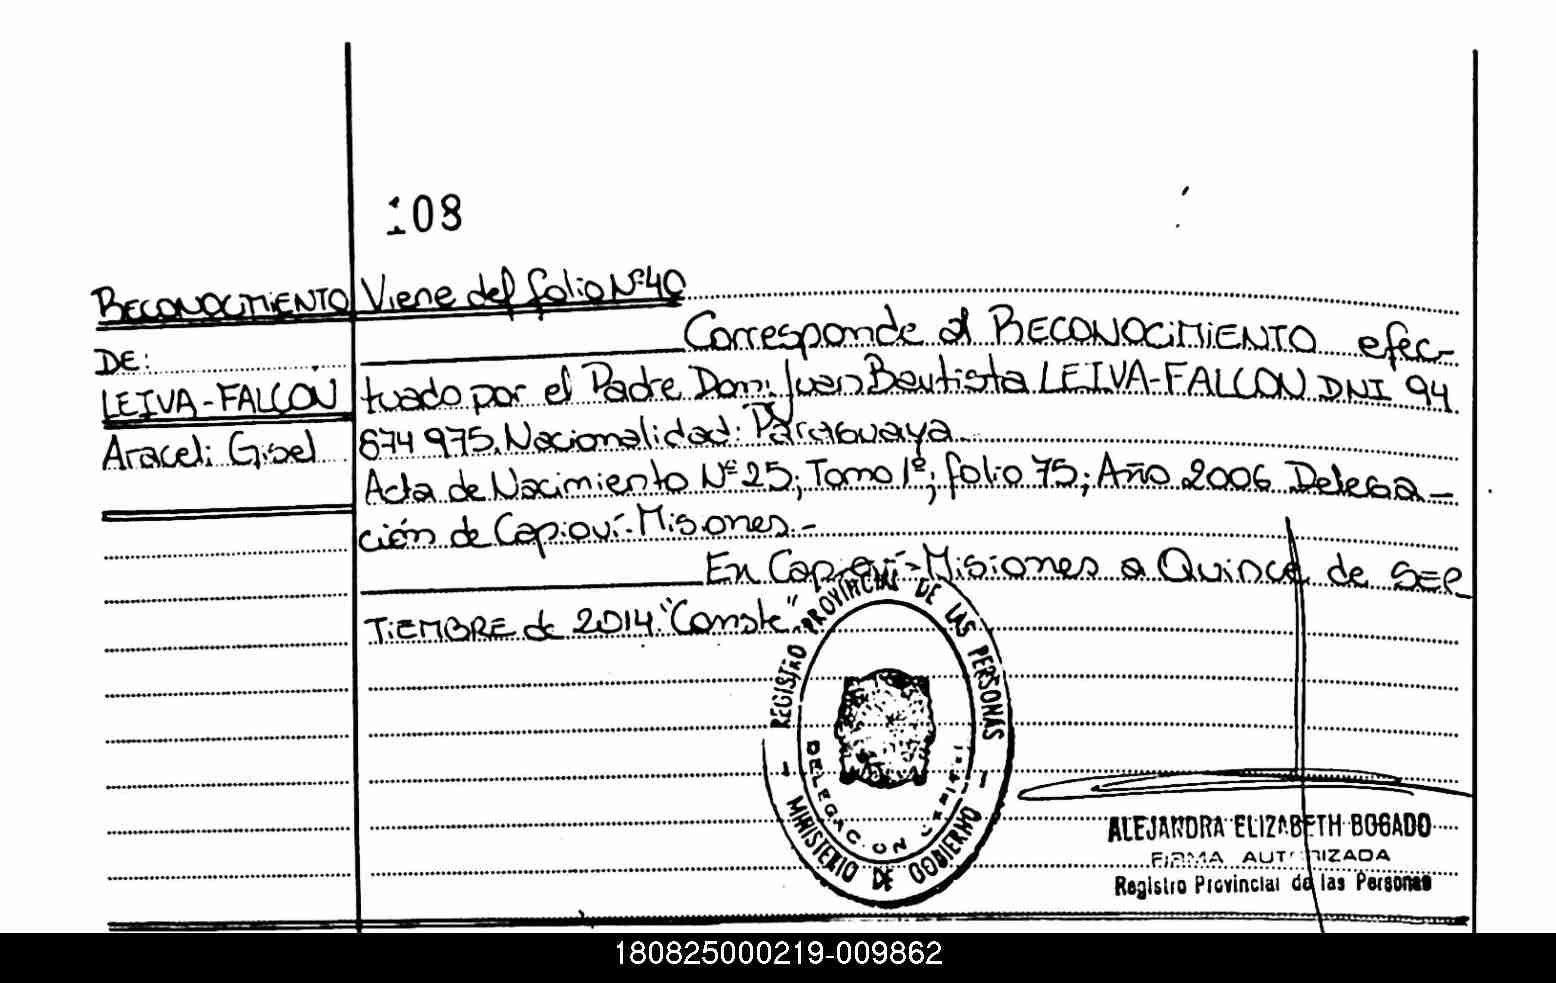 108
RECONOCIMIENTO Viene del folio Nº 40
Corresponde al RECONOCIMIENTO efec-
DE:
LEIVA-FALCON tuado por el Padre Don: Juan Bautista LEIVA-FALCON DNI 94
Araceli Gisel 674 975. Nacionalidad: Paraguaya
Acta de Nacimiento Nº 25; Tomo 1º; folio 75; Año 2006 Delega-
ción de Capioví-Misiones.-
En Capioví-Misiones a Quince de SEP
TIEMBRE de 2014. "Conste".
REGISTRO PROVINCIAL DE LAS PERSONAS
DELEGACION
- MINISTERIO DE GOBIERNO -
ALEJANDRA ELIZABETH BOGADO
FIRMA AUTORIZADA
Registro Provincial de las Personas
180825000219-009862